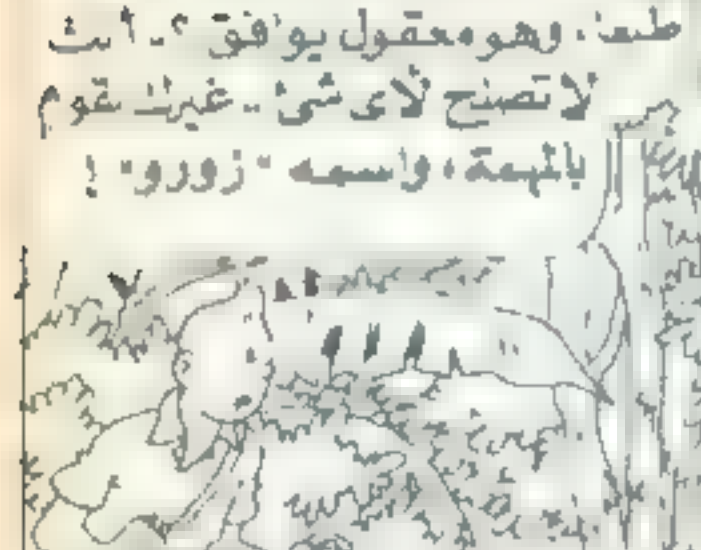 طبعا، وهو معقول يوافق ؟.. انت
لا تصلح لأى شئ .. غيرك يقوم
بالمهمة، واسمه "زورو" !